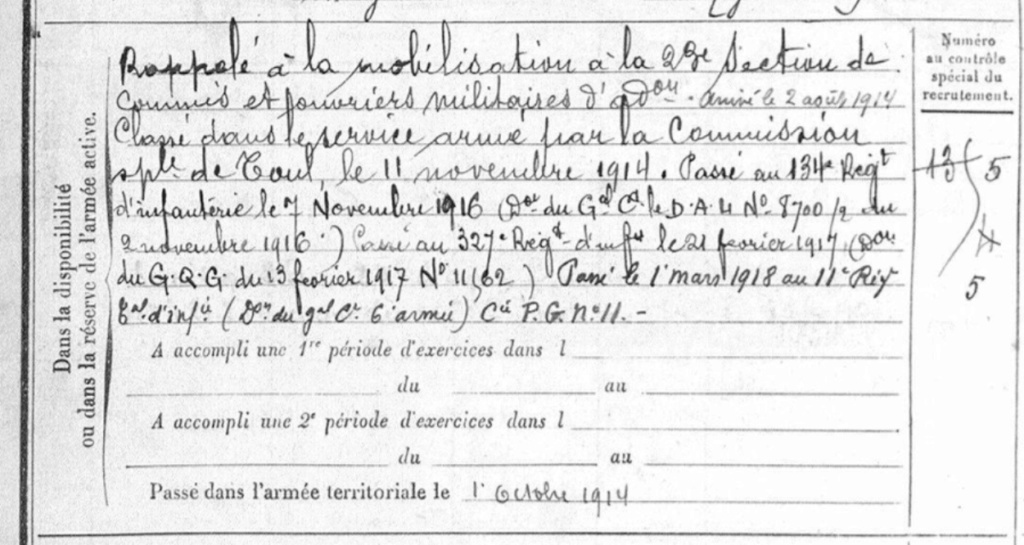 Numéro
au contrôle
spécial du
recrutement.
Dans la disponibilité
ou dans la réserve de l'armée active.
Rappelé à la mobilisation à la 23e Section de
Commis et ouvriers militaires d'adon. Arrivé le 2 août 1914
Classé dans le service armé par la Commission
sple de Toul, le 11 novembre 1914. Passé au 134e Régt
d'infanterie le 7 Novembre 1916 (Don du Gal Ct le D.A.U No 8700/2 du
2 novembre 1916.) Passé au 327e Régt d'infie le 21 fevrier 1917 (Don
du G.Q.G. du 13 fevrier 1917 No 11,62) Passé le 1r mars 1918 au 11e Rég
Eal d'infie (Don du gal Ct 6e armée) Cie P.G. no 11. -
13 5
5
A accompli une 1re période d'exercices dans l
du au
A accompli une 2e période d'exercices dans l
du au
Passé dans l'armée territoriale le 1r Octobre 1914